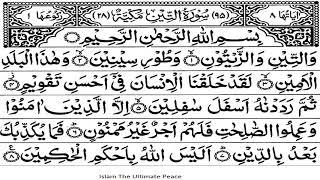 اٰیاتها ٨ (٩٥) سُوْرَةُ التِّيْنِ مَكِّيَّةٌ (٢٨) رکوعها ١
بِسْمِ اللهِ الرَّحْمٰنِ الرَّحِيْمِ
وَالتِّيْنِ وَالزَّيْتُوْنِ ۙ١ وَطُوْرِ سِيْنِيْنَ ۙ٢ وَهٰذَا الْبَلَدِ
الْاَمِيْنِ ۙ٣ لَقَدْ خَلَقْنَا الْاِنْسَانَ فِيْۤ اَحْسَنِ تَقْوِيْمٍ ۫٤
ثُمَّ رَدَدْنٰهُ اَسْفَلَ سٰفِلِيْنَ ۙ٥ اِلَّا الَّذِيْنَ اٰمَنُوْا
وَعَمِلُوا الصّٰلِحٰتِ فَلَهُمْ اَجْرٌ غَيْرُ مَمْنُوْنٍ ؕ٦ فَمَا يُكَذِّبُكَ
بَعْدُ بِالدِّيْنِ ؕ٧ اَلَيْسَ اللهُ بِاَحْكَمِ الْحٰكِمِيْنَ ٨
Islam The Ultimate Peace